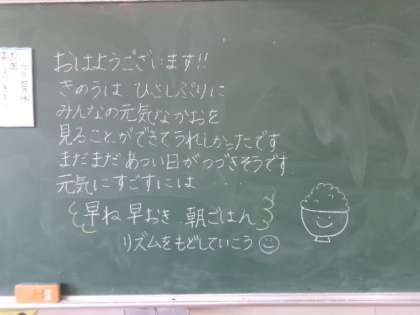 おはようございます!!
きのうは ひさしぶりに
みんなの元気なかおを
見ることができてうれしかったです
まだまだ あつい日がつづきそうです
元気にすごすには
早ね 早おき 朝ごはん
リズムをもどしていこう